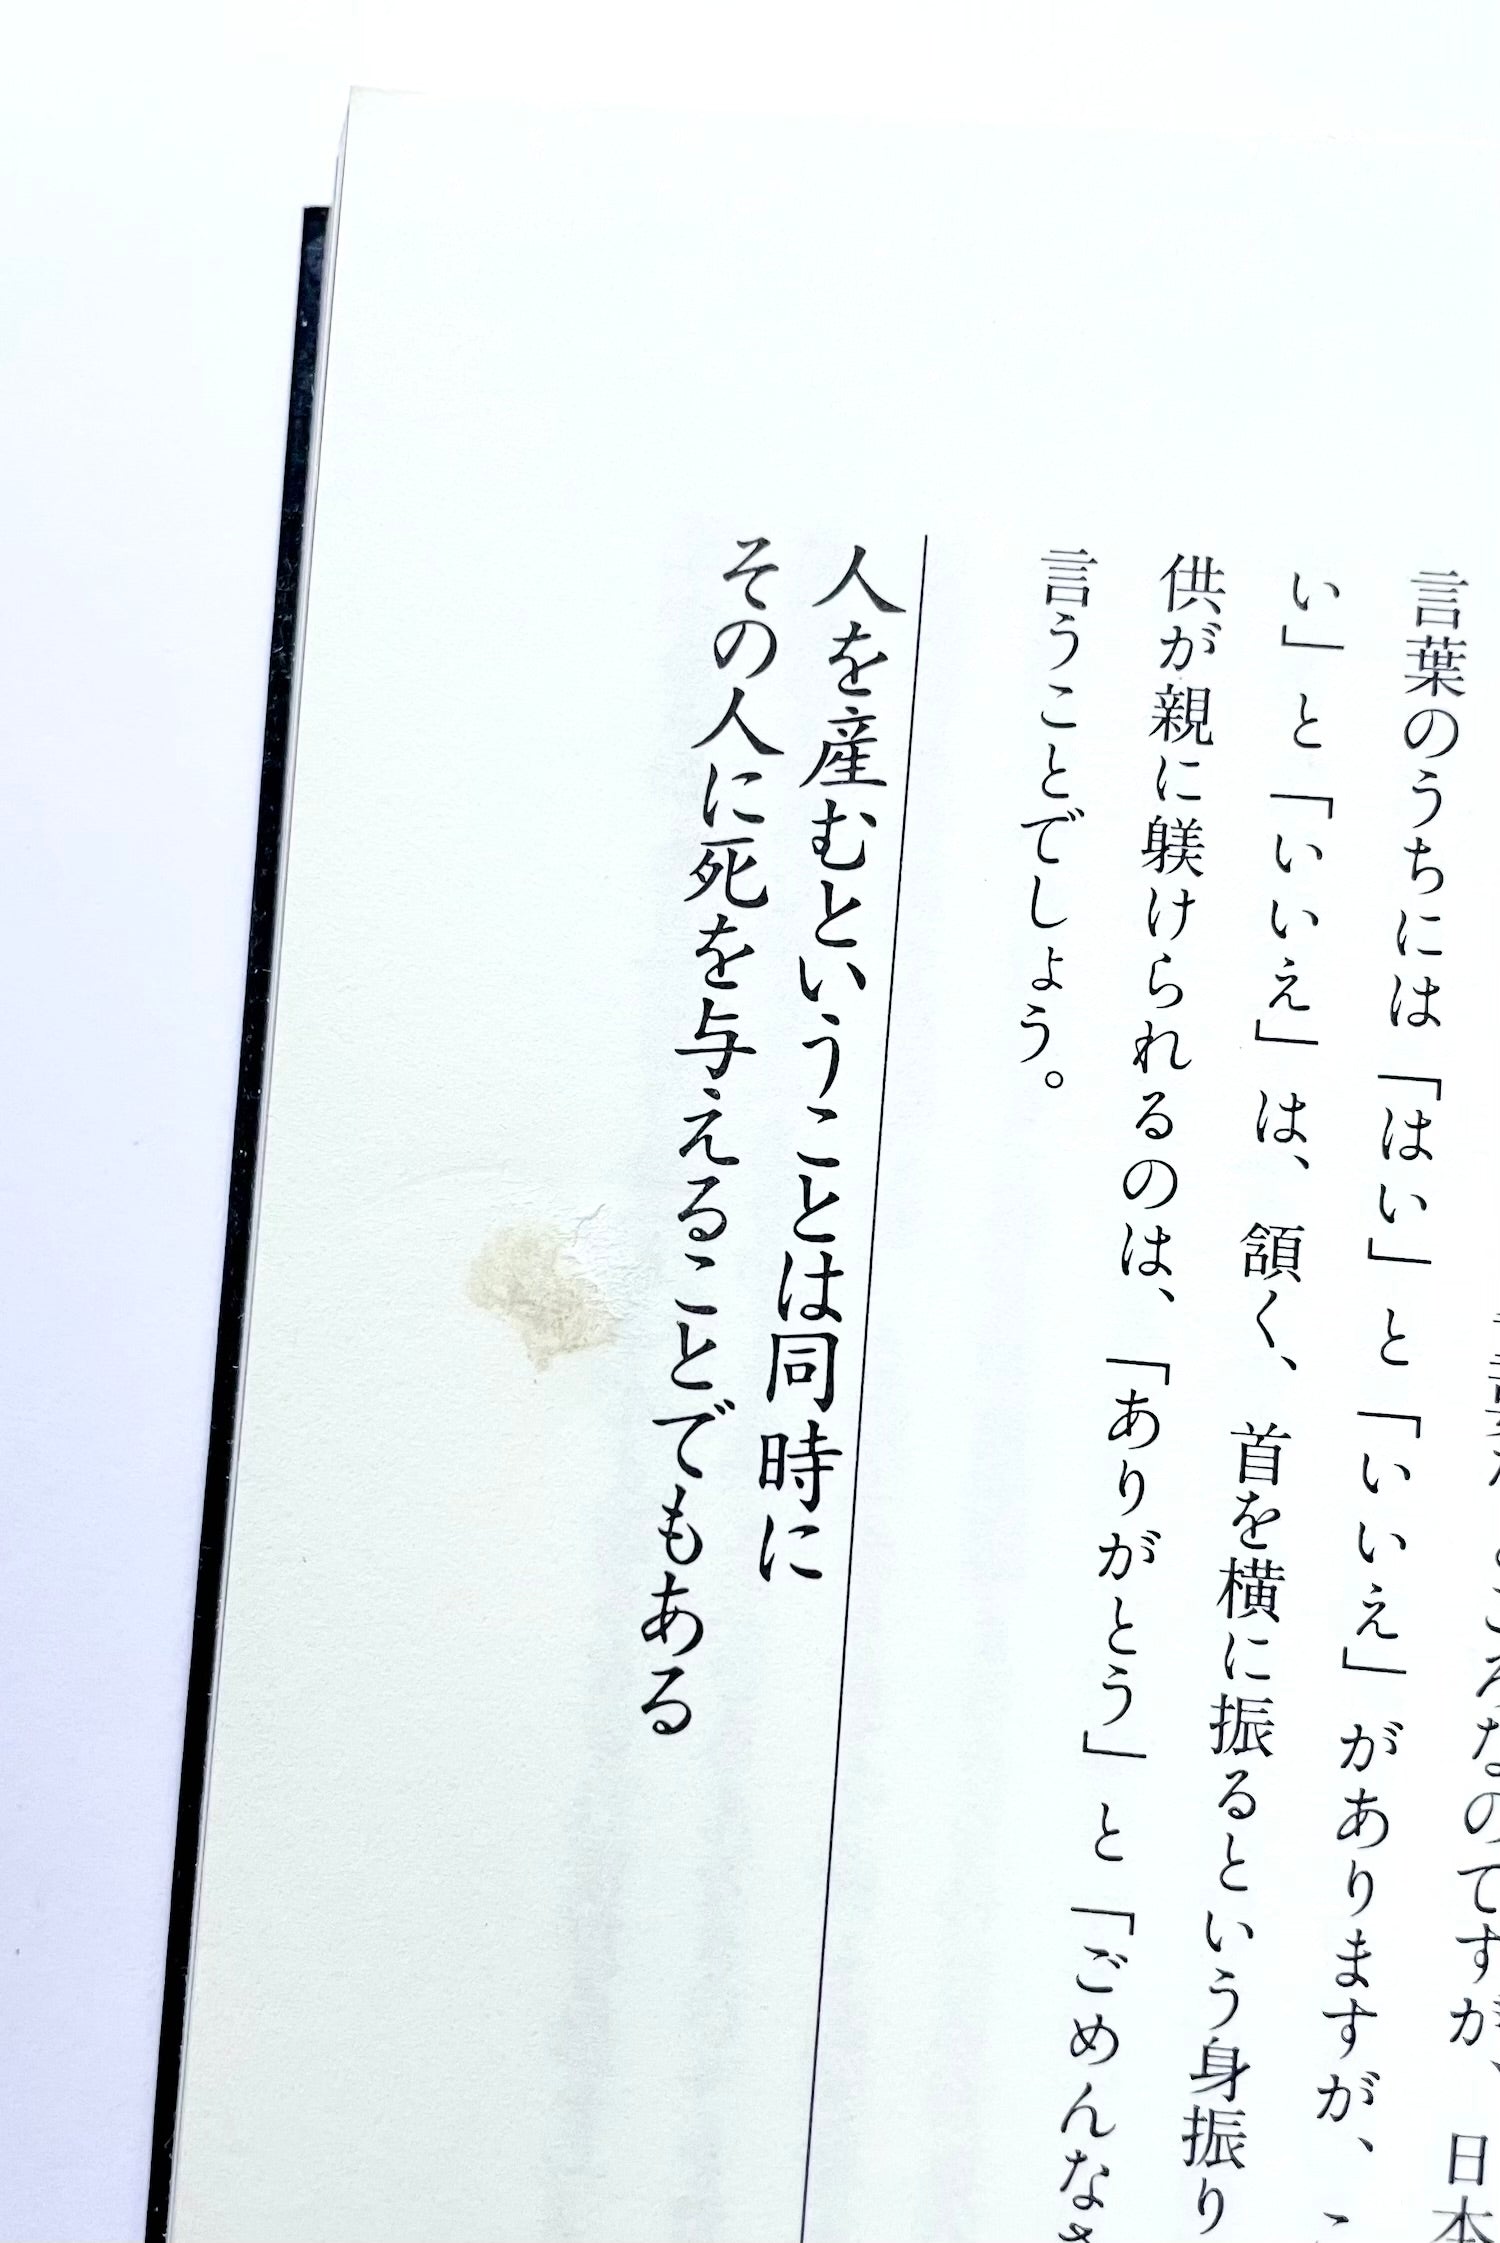 ころなのですが、日本
言葉のうちには「はい」と「いいえ」がありますが、こ
い」と「いいえ」は、頷く、首を横に振るという身振り
供が親に躾けられるのは、「ありがとう」と「ごめんなさ
言うことでしょう。
人を産むということは同時に
その人に死を与えることでもある